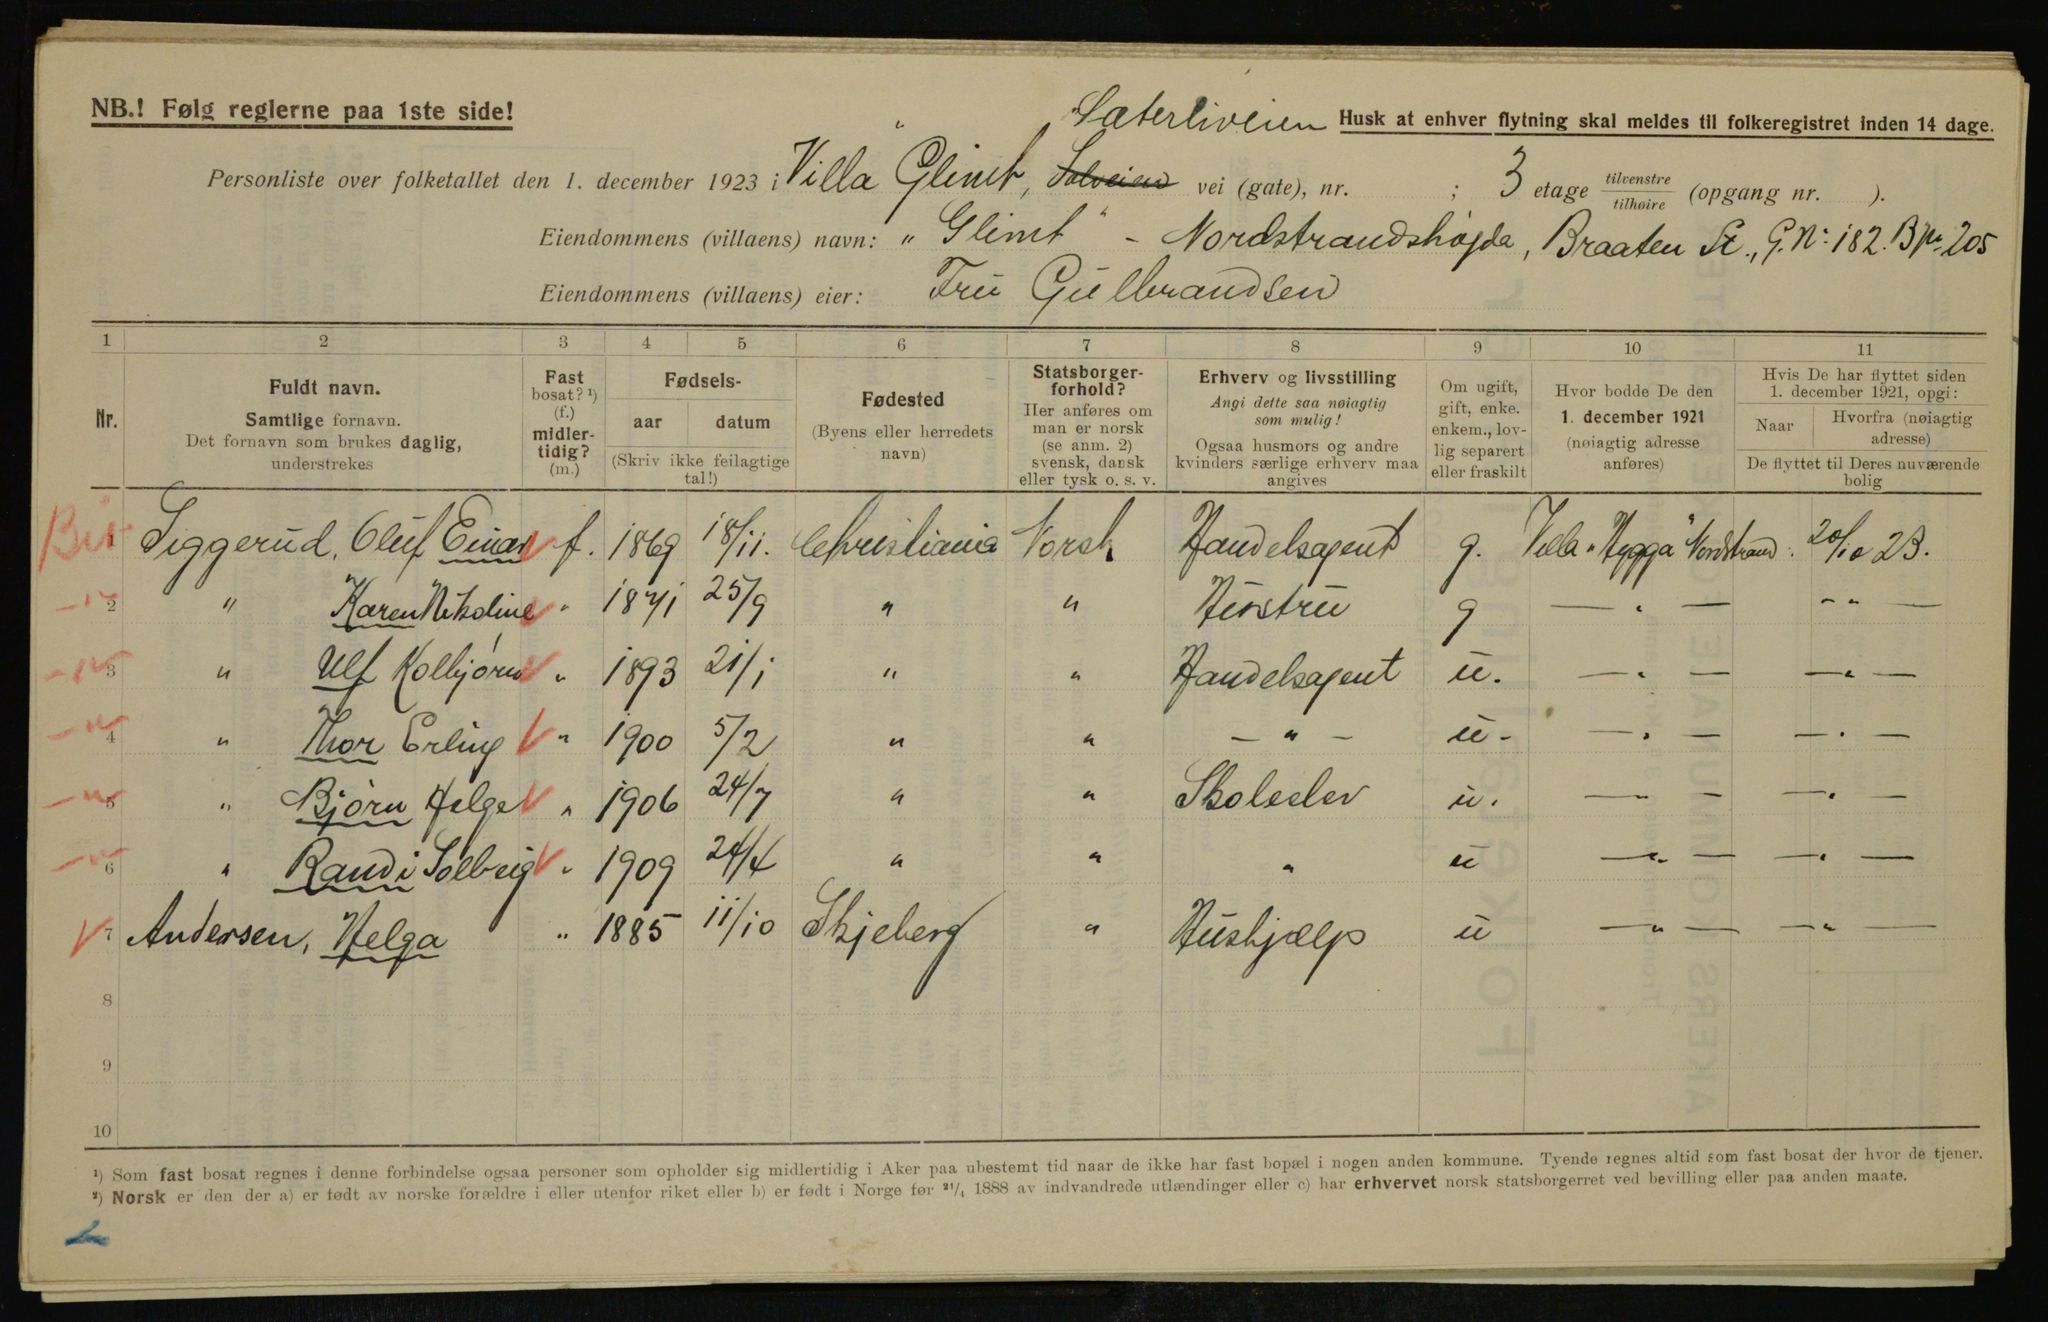 Sæterliveien
NB.! Følg reglerne paa 1ste side! Husk at enhver flytning skal meldes til folkeregistret inden 14 dage.
Personliste over folketallet den 1. december 1923 i Villa "Glimt, Solveien vei (gate), nr. ; 3 etage tilvenstre/tilhøire (opgang nr. ).
Eiendommens (villaens) navn: "Glimt" - Nordstrandshøgda, Braaten St., G.Nr. 182. Bnr. 205
Eiendommens (villaens) eier: Fru Gulbrandsen
1 2 3 4 5 6 7 8 9 10 11
Nr.
Fuldt navn.
Samtlige fornavn.
Det fornavn som brukes daglig,
understrekes
Fast
bosat? ¹)
(f.)
midler-
tidig?
(m.)
Fødsels-
aar datum
(Skriv ikke feilagtige
tal!)
Fødested
(Byens eller herredets
navn)
Statsborger-
forhold?
Her anføres om
man er norsk
(se anm. 2)
svensk, dansk
eller tysk o. s. v.
Erhverv og livsstilling
Angi dette saa nøiagtig
som mulig!
Ogsaa husmors og andre
kvinders særlige erhverv maa
angives
Om ugift,
gift, enke.
enkem., lov-
lig separert
eller fraskilt
Hvor bodde De den
1. december 1921
(nøiagtig adresse
anføres)
Hvis De har flyttet siden
1. december 1921, opgi:
Naar Hvorfra (nøiagtig
adresse)
De flyttet til Deres nuværende
bolig
1 Siggerud, Oluf Einar f. 1869 18/11. Christiania Norsk Handelsagent g. Villa "Hygga" Nordstrand. 20/10 23.
2 " Karen Nikoline " 1871 25/9 " " Hustru g — " — — " —
3 " Ulf Kolbjørn " 1893 21/1 " " Handelsagent u. — " — — " —
4 " Thor Erling " 1900 5/2 " " — " — u. — " — — " —
5 " Bjørn Helge " 1906 24/7 " " Skoleelev u. — " — — " —
6 " Randi Solveig " 1909 24/4 " " " u — " — — " —
7 Andersen, Helga " 1885 11/10 Skjeberg " Hushjælp u — " — — " —
8
9
10
¹) Som fast bosat regnes i denne forbindelse ogsaa personer som opholder sig midlertidig i Aker paa ubestemt tid naar de ikke har fast bopæl i nogen anden kommune. Tyende regnes altid som fast bosat der hvor de tjener.
²) Norsk er den der a) er født av norske forældre i eller utenfor riket eller b) er født i Norge før ²¹/₄ 1888 av indvandrede utlændinger eller c) har erhvervet norsk statsborgerret ved bevilling eller paa anden maate.